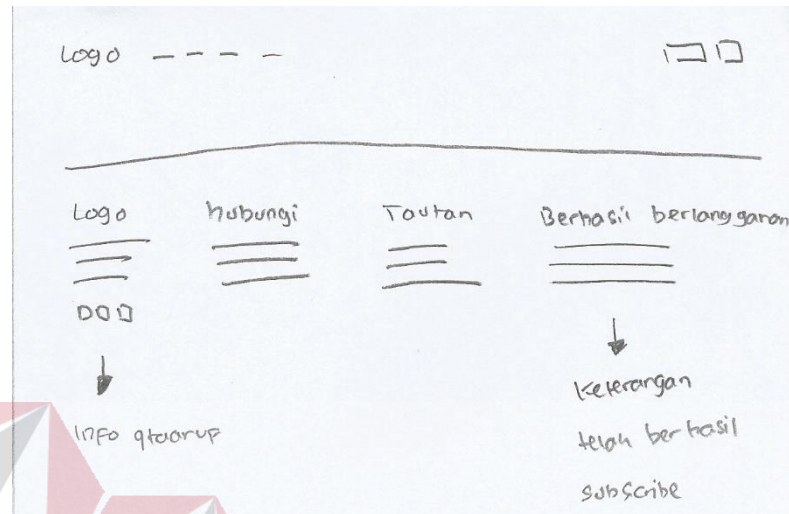 Logo
Logo hubungi Tautan Berhasil berlangganan
Keterangan
Info
telah berhasil
subscribe